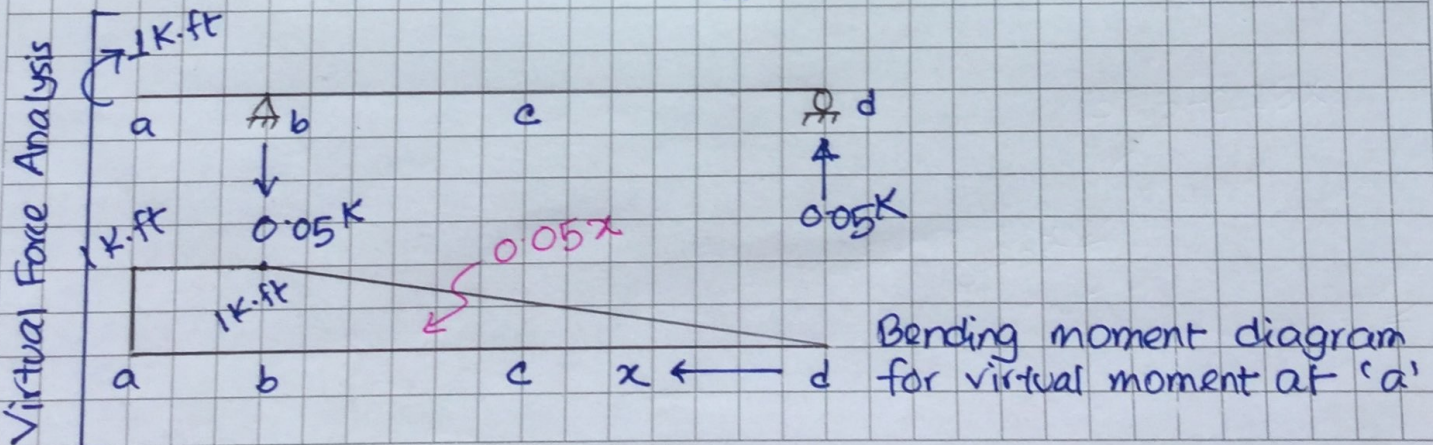 Virtual Force Analysis
1K.ft
a
b
c
d
0.05K
0.05K
1K.ft
0.05x
1K.ft
a b c x ← d
Bending moment diagram
for virtual moment at 'a'